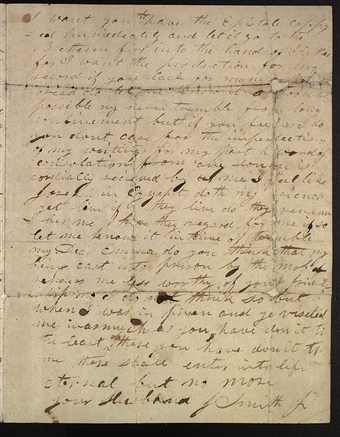 I want you to have the Epistole copy
ed immediately and let it go to the
Brethren first into the hands of
for I want the production for my
record if you lack for money
possible my nerve trembles from long
confinement but if you feel as I do
you dont care for the imperfections
of my writing for my part a word of
consolation from any source is
cordially received by me I feel like
Joseph in Egypt doth my friends
yet live if they live do they remember
me have they regard for me if so
let me know it in time of trouble
my Dear Emma do you think that my
being cast into prison by the mob
renders me less worthy of your friend
ship no I do not think so but
when I was in prison and ye viseted
me inasmuch as you have don it to
the least these you have don it to
me these shall enter into life
eternal but no more
your Husband
J Smith Jr